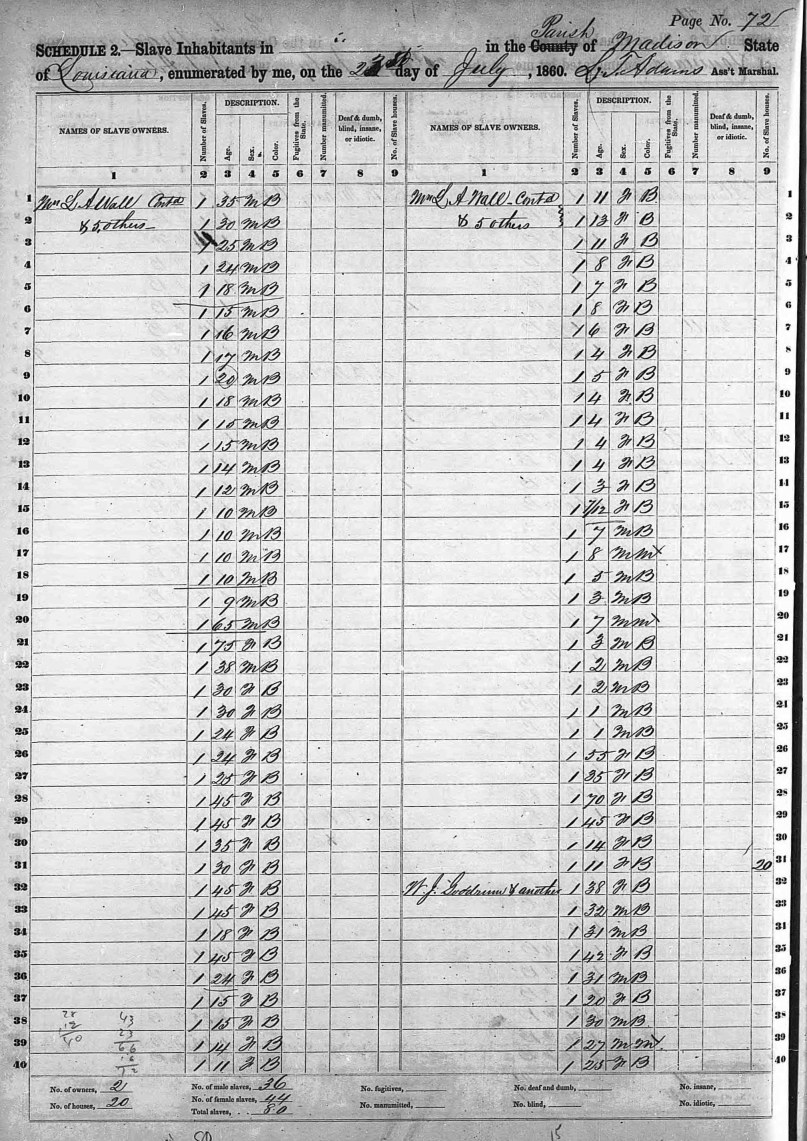 Page No. 72
SCHEDULE 2.—Slave Inhabitants in " in the County Parish of Madison State
of Louisiana, enumerated by me, on the day of July, 1860. Adams Ass't Marshal.
NAMES OF SLAVE OWNERS. Number of Slaves. DESCRIPTION. Age. Sex. Color. Fugitives from the State. Number manumitted. Deaf & dumb, blind, insane, or idiotic. No. of Slave houses. NAMES OF SLAVE OWNERS. Number of Slaves. DESCRIPTION. Age. Sex. Color. Fugitives from the State. Number manumitted. Deaf & dumb, blind, insane, or idiotic. No. of Slave houses.
1 2 3 4 5 6 7 8 9 1 2 3 4 5 6 7 8 9
1 Wm L A Wall Contd 1 35 M B Wm L A Wall Contd 1 11 F B 1
2 & 5 others 1 30 M B & 5 others 1 13 F B 2
3 1 25 M B 1 11 F B 3
4 1 24 M B 1 8 F B 4
5 1 18 M B 1 7 F B 5
6 1 15 M B 1 8 F B 6
7 1 16 M B 1 6 F B 7
8 1 17 M B 1 4 F B 8
9 1 20 M B 1 5 F B 9
10 1 18 M B 1 4 F B 10
11 1 15 M B 1 4 F B 11
12 1 15 M B 1 4 F B 12
13 1 14 M B 1 4 F B 13
14 1 12 M B 1 3 F B 14
15 1 10 M B 1 7/12 F B 15
16 1 10 M B 1 7 M B 16
17 1 10 M B 1 8 M M 17
18 1 10 M B 1 5 M B 18
19 1 9 M B 1 3 M B 19
20 1 65 M B 1 7 M M 20
21 1 75 F B 1 3 M B 21
22 1 38 M B 1 2 M B 22
23 1 30 F B 1 2 M B 23
24 1 30 F B 1 1 M B 24
25 1 24 F B 1 1 M B 25
26 1 24 F B 1 55 F B 26
27 1 25 F B 1 35 F B 27
28 1 45 F B 1 70 F B 28
29 1 45 F B 1 45 F B 29
30 1 35 F B 1 14 F B 30
31 1 30 F B 1 11 F B 20 31
32 1 45 F B W. J. & another 1 38 F B 32
33 1 45 F B 1 32 M B 33
34 1 18 F B 1 31 M B 34
35 1 45 F B 1 42 F B 35
36 1 24 F B 1 31 M B 36
37 1 15 F B 1 20 F B 37
38 1 15 F B 1 30 M B 38
39 1 14 F B 1 27 M M 39
40 1 11 F B 1 25 F B 40
28 43
12 23
40 66
No. of owners, 2 No. of male slaves, 36 No. fugitives, No. deaf and dumb, No. insane,
No. of houses, 20 No. of female slaves, 44 No. manumitted, No. blind, No. idiotic,
Total slaves, 80
80 15